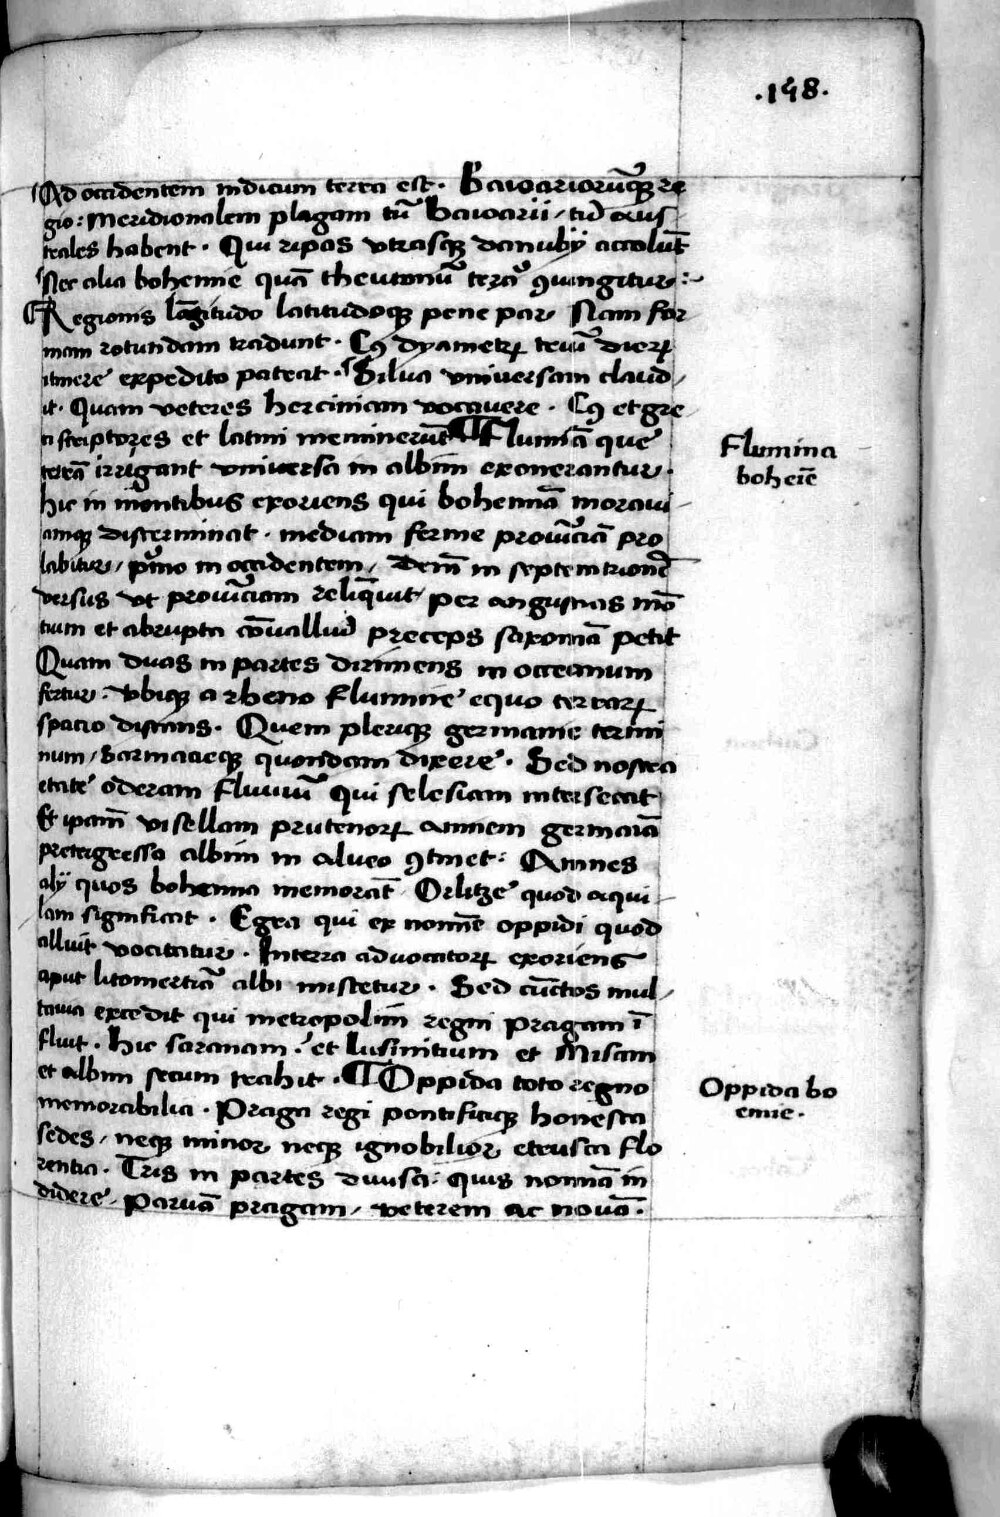 .158.
Ad occidentem indicum terra est. Bavariorūqꝫ re
gio: Meridionalem plagam tū Bavarii, tū aus-
trales habent. Qui ripas utrasqꝫ danubÿ accolūt
Nec alia bohemie quā theutonū terra ꝯtingitur:
Regionis lāgitudo latitudoqꝫ pene par. Nam for
mam rotundam tradunt. Cꝰ dyametrꝝ triū dierꝝ
itinere expedito pateat. Silva universam claud-
it. Quam veteres herciniam vocavere. Cꝰ et gre-
ci scriptores et latini meminerūt Flumīa que
terrā irrigant universa in albim exonerantur.
hic in montibus exoriens qui bohemiā moravi-
amqꝫ disterminat. mediam ferme provīciā pro
labitur, primo in occidentem, Dein in septemtrionē
versus ut provīciam reliquit per angustias mō
tium et abrupta cōvalliū preceps saxoniā petit
Quam duas in partes dirimens in occeanum
fertur. Ubiqꝫ a rheno flumine equo terrarꝝ
spacio distans. Quem pleriqꝫ germanie termi
num, Sarmacieqꝫ quondam dixere. Sed nostra
etate oderam fluviū qui selesiam intersecat
Et ipam̄ visellam prutenorꝝ amnem germaīa
pretergressa albim in alveo ꝯtinet: Amnes
alÿ quos bohemia memorat Orlitze quod aqui-
lam significat. Egra qui ex nomīe oppidi quod
alluit vocitatur. In terra advocatorꝝ exoriens
aput litomertiā albi miscetur. Sed cūctos mul-
tavia excedit qui metropolim regni pragam ī
fluit. hic saranam. et Lusinitium et Misam
et albim secum trahit. Oppida toto regno
memorabilia. Praga regi pontificiqꝫ honesta
sedes, neqꝫ minor neqꝫ ignobilior etrusca flo
rentia. Tris in partes divisa: quis nomīa in
didere. Parvā pragam, veterem ac novā.
Flumina
boheīe
Oppida bo
emie.